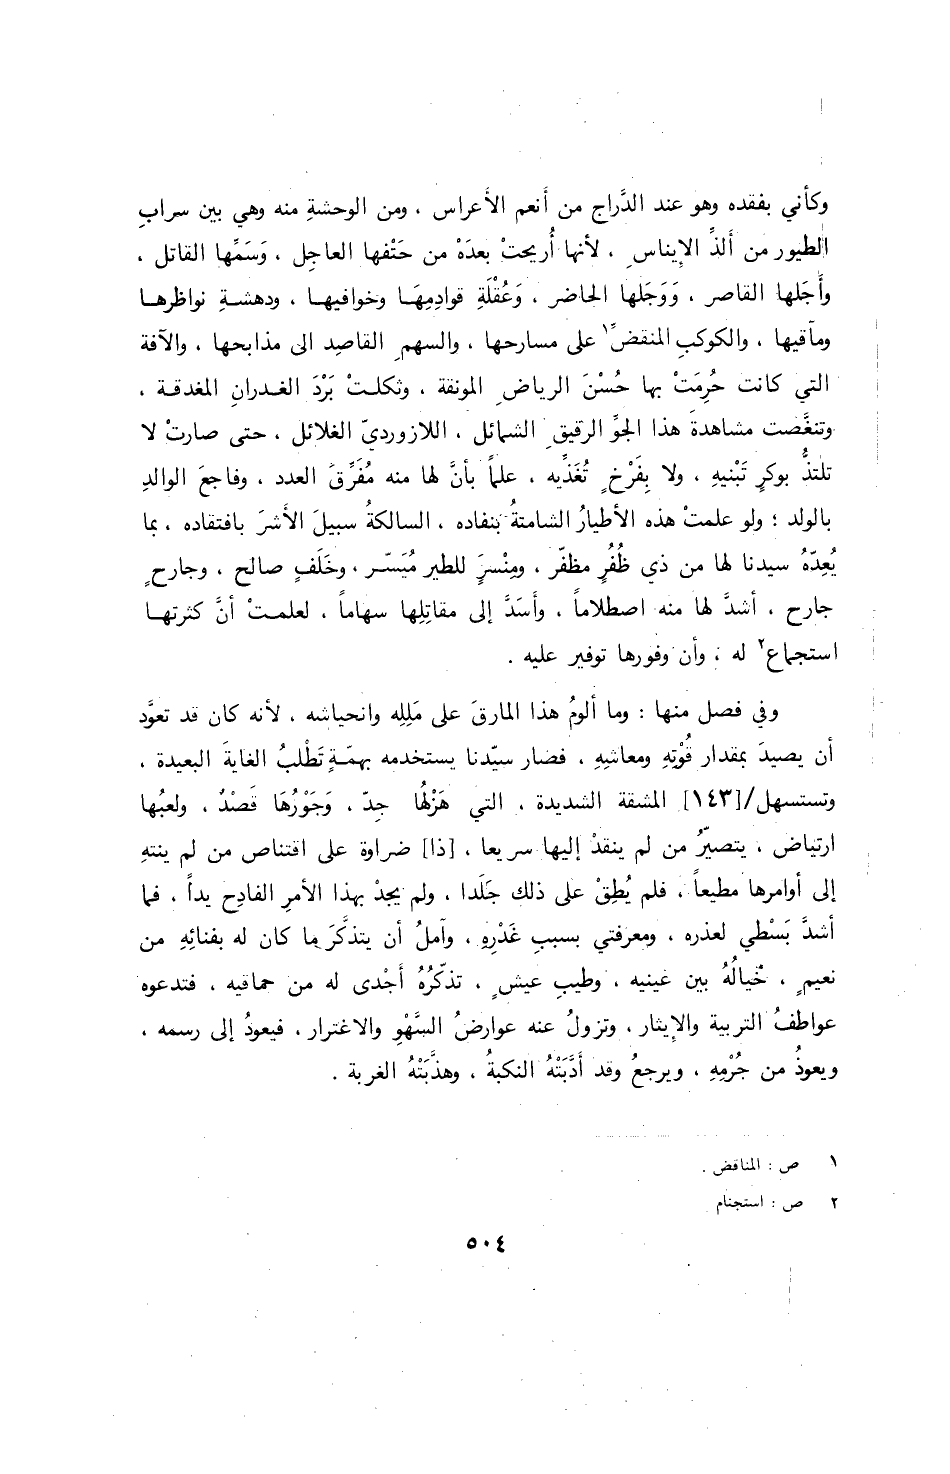 وكأني بفقده وهو عند الدَّراج من أنعم الأعراس ، ومن الوحشةِ منه وهي بين سرابِ
الطيور من ألذِّ الإيناسِ ، لأنها أُريحتْ بعدَهْ من حَتْفها العاجِل ، وَسَمِّها القاتل ،
وأَجَلها القاصر ، وَوَجَلها الحاضر ، وَعُقْلَةِ قوادِمِهَا وخوافيها ، ودهشةِ نواظرها
ومآقيها ، والكوكبِ المنقضِّ١ على مسارحها ، والسهمِ القاصِد الى مذابحها ، والآفة
التي كانت حُرِمَتْ بها حُسْنَ الرياضِ المونقة ، وثكلتْ بَرْدَ الغدرانِ المغدقة ،
وتنغَّصت مشاهدةَ هذا الجوِّ الرقيقِ الشمائل ، اللازورديّ الغلائل ، حتى صارتْ لا
تلتذُّ بوكرٍ تَبْنيهِ ، ولا بِفَرْخٍ تُغَذِّيه ، علماً بأنَّ لها منه مُفَرِّقَ العدد ، وفاجعَ الوالدِ
بالولد ؛ ولو علمتْ هذه الأطيارُ الشامتةُ بنفاده ، السالكةُ سبيلَ الأشرَ بافتقاده ، بما
يُعِدّهُ سيدنا لها من ذي ظُفُرٍ مظفّر ، ومِنْسَرٍ للطير مُيَسّر ، وخَلَفٍ صالح ، وجارحٍ
جارح ، أشدَّ لها منه اصطلاماً ، وأَسَدَّ إلى مقاتِلِها سهاماً ، لعلمتْ أنَّ كثرتها
استجماع٢ له ، وأن وفورها توفير عليه .
وفي فصل منها : وما ألومُ هذا المارقَ على مَلِلِه وانحياشه ، لأنه كان قد تعوَّد
أن يصيدَ بمقدار قُوْتِهِ ومعاشِهِ ، فصار سيّدنا يستخدمه بهمّةٍ تَطْلبُ الغايةَ البعيدة ،
وتستسهل/[١٤٣] المشقة الشديدة ، التي هَزْلُها جِدّ ، وَجَوْرُهَا قَصْدٌ ، ولعبُها
ارتياض ، يتصيّرُ من لم ينقدْ إليها سريعا ، [ذا] ضراوة على اقتناص من لم ينتهِ
إلى أوامرها مطيعاً ، فلم يُطِقْ على ذلك جَلَدا ، ولم يجدْ بهذا الأمرِ الفادِح يداً ، فما
أشدَّ بَسْطي لعذره ، ومعرفتي بسببِ غَدْرِهِ ، وآملُ أن يتذكَّرَ ما كان له بفنائِهِ من
نعيمٍ ، خيالُهُ بين عينيه ، وطيبِ عيشٍ ، تذكّرُهُ أَجْدى له من حماقيه ، فتدعوه
عواطفُ التربية والإيثار ، وتزولُ عنه عوارضُ السَّهْوِ والاغترار ، فيعودُ إلى رسمه ،
ويعوذُ من جُرْمِهِ ، ويرجعُ وقد أَدَّبَتْهُ النكبةُ ، وهذَّبَتْهُ الغربة .
١ ص : المناقض .
٢ ص : استجنام
٥٠٤